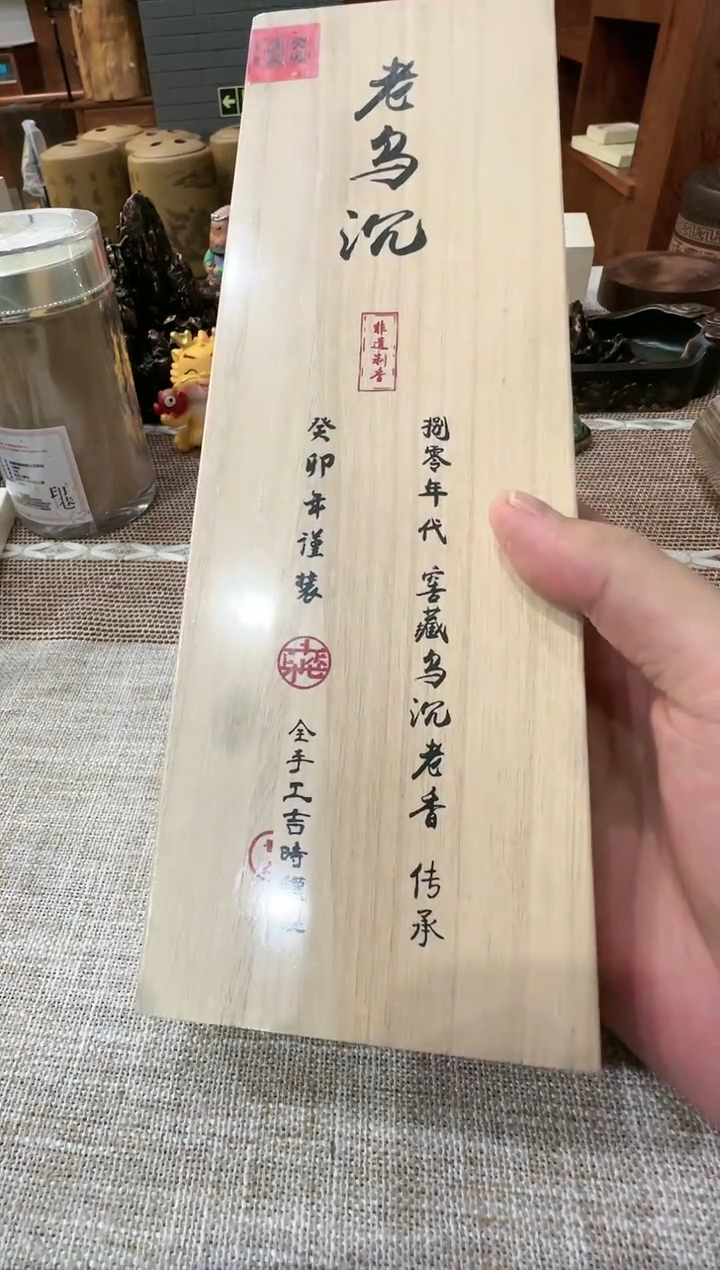 老乌沉
非遗制香
捌零年代 窖藏乌沉老香 传承
癸卯年谨装
全手工吉時